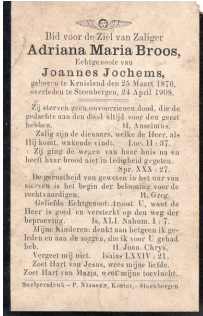 Bid voor de Ziel van Zaliger
Adriana Maria Broos,
Echtgenoote van
Joannes Jochems,
geboren te Kruisland den 25 Maart 1876,
overleden te Steenbergen, 24 April 1908.
Zij sterven geen onvoorzienen dood, die de
gedachte aan den dood altijd voor den geest
hebben. H. Anselmus.
Zalig zijn de dienaars, welke de Heer, als
Hij komt, wakende vindt. Luc. II : 37.
Zij ging de wegen van haar huis na en
heeft haar brood niet in ledigheid gegeten.
Spr. XXX : 27.
De gerustheid van geweten in het uur van
sterven is het begin der belooning voor de
rechtvaardigen. H. Greg.
Geliefde Echtgenoot: Troost U, want de
Heer is goed en versterkt op den weg der
beproeving. Is. XLI. Nahum. I : 7.
Mijne Kinderen: denkt aan hetgeen ik ge-
leden en aan de zorgen, die ik voor U gehad
heb. H. Joan. Chrys.
Vergeet mij niet. Isaias LXXIV : 21.
Zoet Hart van Jesus, wees mijne liefde.
Zoet Hart van Maria, wees mijne toevlucht.
Snelpersdruk – P. Nijssen, Koster, – Steenbergen